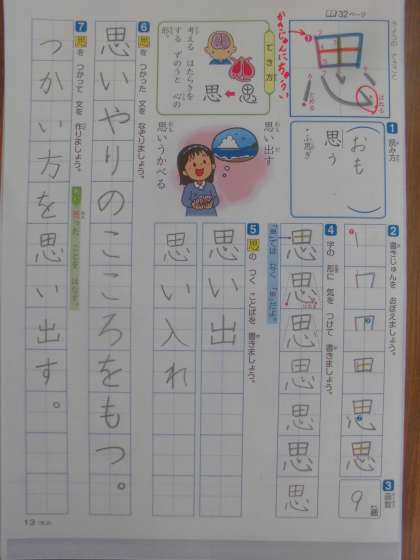 32ページ
かきじゅんにちゅうい
思
とめる
はねる
でき方
考える はたらきを
する ずのうと 心の
形。
思
1 読み方
おも
思う
ふ思ぎ
思い出す
思いうかべる
2 書きじゅんを おぼえましょう。
思
3 画数
9
画
4 字の 形に 気を つけて 書きましょう。
思
思
思
思
思
思
思
5 思の つく ことばを 書きましょう。
思い出
思い入れ
6 思を つかった 文を なぞりましょう。
思いやりのこころをもつ。
7 思を つかって 文を 作りましょう。
つかい方を思い出す。
13